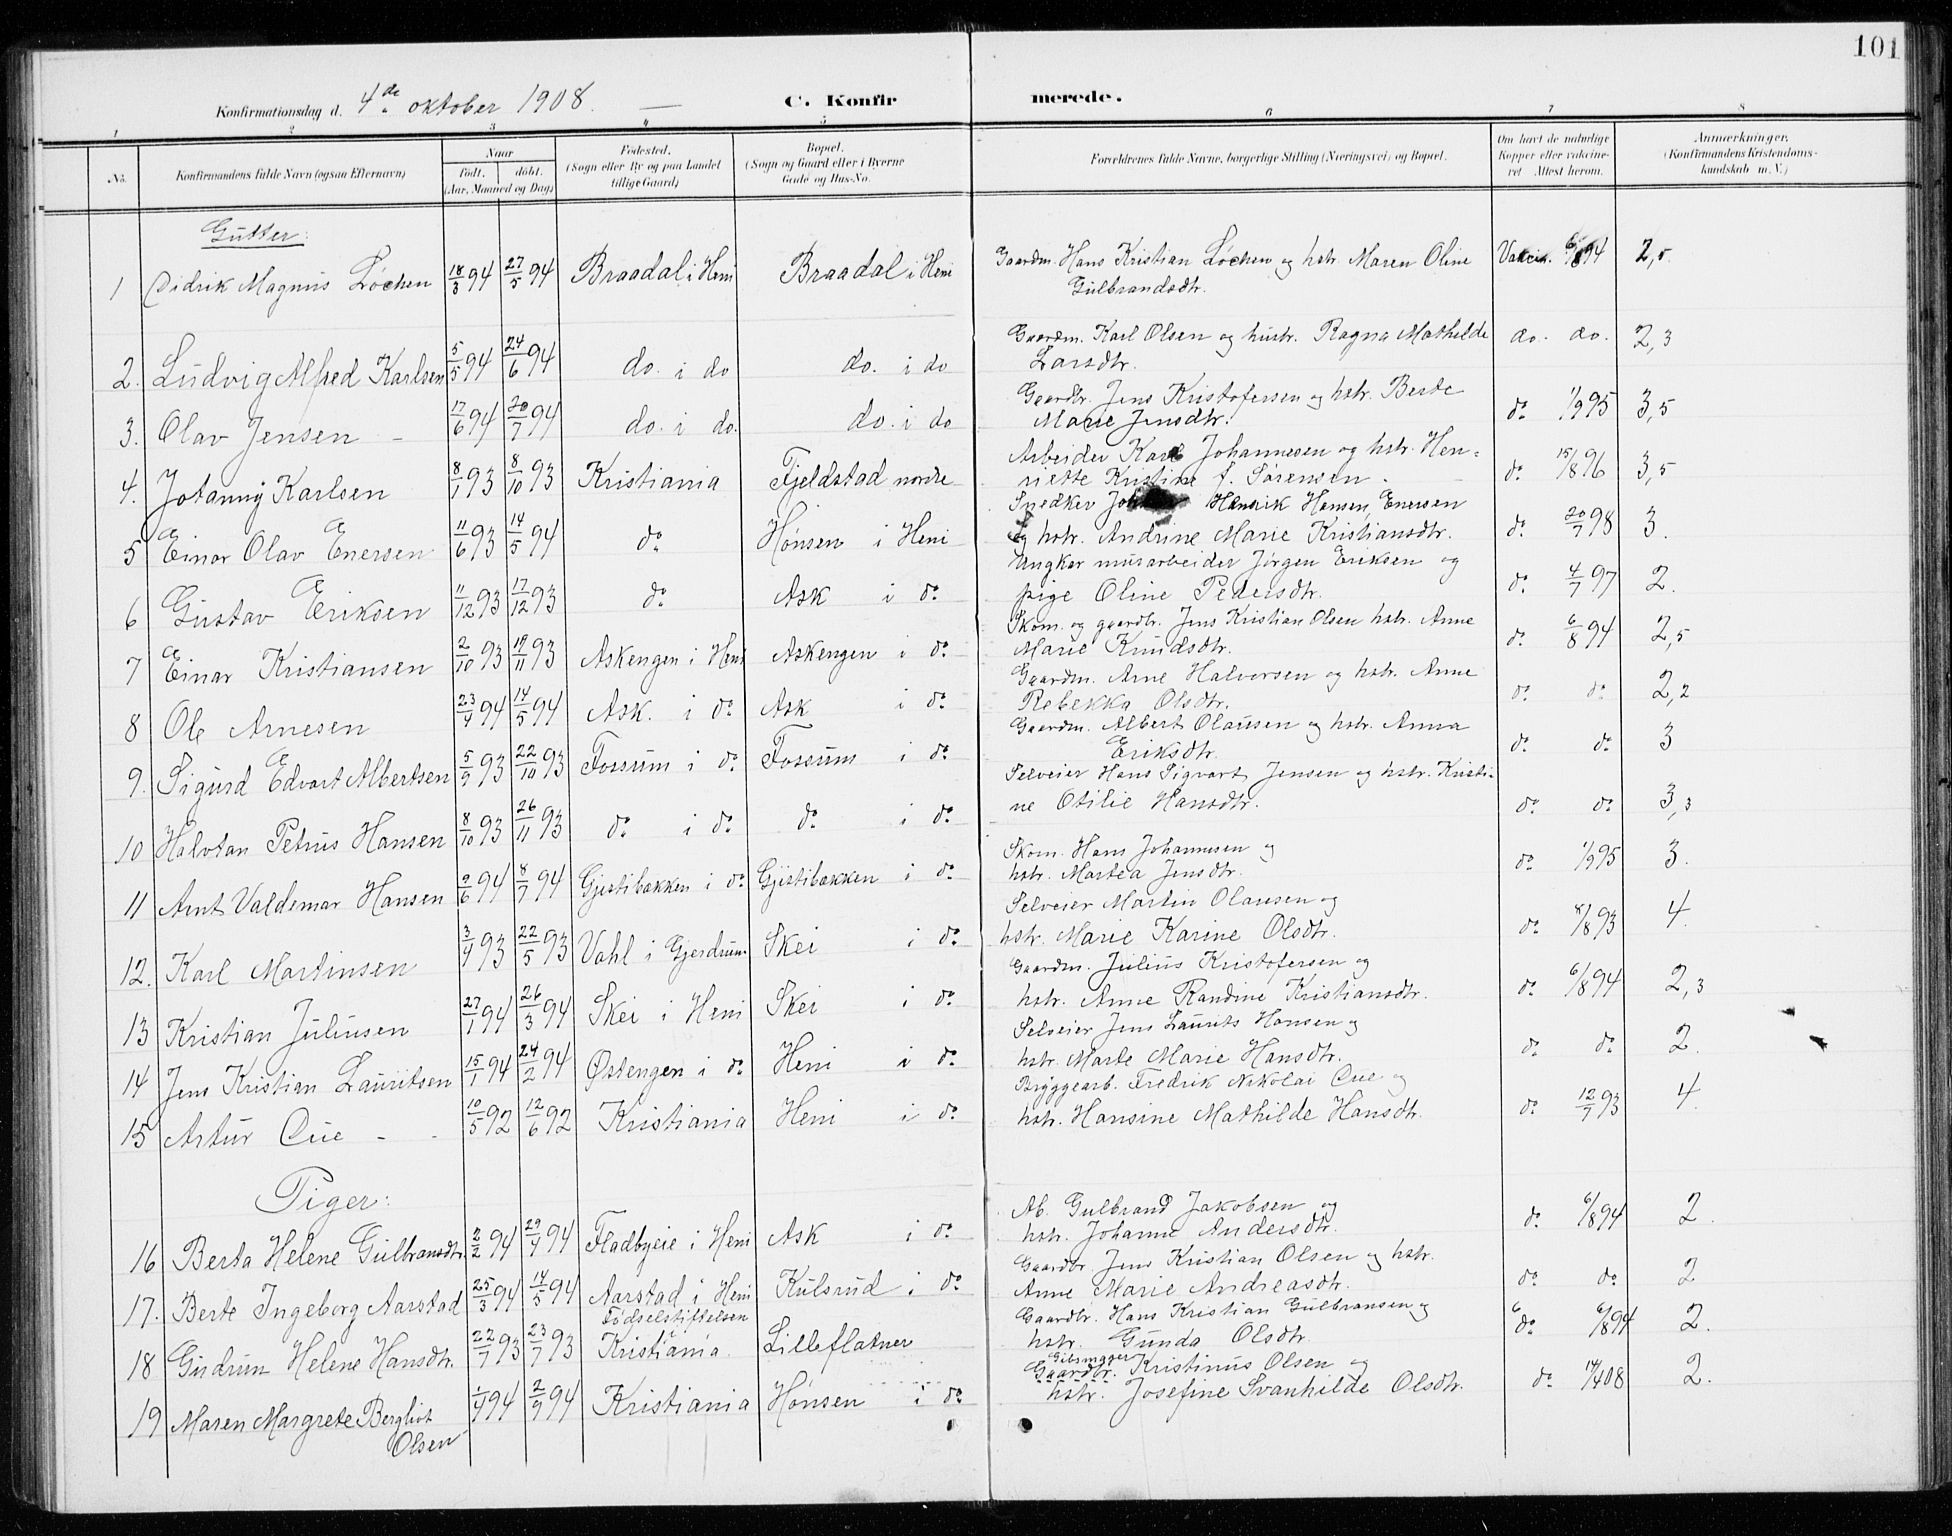 101
Konfirmationsdag d. 4de oktober 1908. — C. Konfirmerede.
1 2 3 4 5 6 7 8
No. Konfirmandens fulde Navn (ogsaa Efternavn) Naar født. døbt. (Aar, Maaned og Dag) Fødested. (Sogn eller By og paa Landet tillige Gaard) Bopæl. (Sogn og Gaard eller i Byerne Gade og Hus-No. Forældrenes fulde Navne, borgerlige Stilling (Næringsvei) og Bopæl. Om havt de naturlige Kopper eller vaccineret Attest herom. Anmærkninger. (Konfirmandens Kristendomskundskab m. V.)
Gutter:
1 Didrik Magnus Løchen 18/3 94 27/5 94 Braadal i Heni Braadal i Heni Gaardm. Hans Kristian Løchen og hstr. Maren Oline Gulbrandsdtr. Vakcin. 6/8 94 2,5.
2. Ludvig Alfred Karlsen 5/5 94 24/6 94 do. i do do. i do Gaardm. Karl Olsen og hustr. Ragna Mathilde Larsdtr. do. do. 2,3
3. Olav Jensen - 17/6 94 20/7 94 do. i do. do. i do Gaardbr. Jens Kristofersen og hstr. Berte Marie Jensdtr. do 1/9 95 3,5
4. Johanny Karlsen 8/1 93 8/10 93 Kristiania Fjeldstad nordre Arbeider Karl Johannesen og hstr. Henriette Kristine f. Sørensen. - do 15/8 96 3,5
5 Einar Olav Enersen 11/6 93 14/5 94 do Hønsen i Heni Snedker Henrik Hansen Enersen og hstr. Andrine Marie Kristiansdtr. do 20/7 98 3.
6 Gustav Eriksen 11/12 93 17/12 93 do Ask i do Ungkar murarbeider Jørgen Eriksen og pige Oline Pedersdtr. do 4/7 97 2.
7 Einar Kristiansen 2/10 93 19/11 93 Askengen i Heni Askengen i do Skom. og gaardbr. Jens Kristian Olsen hstr. Anne Marie Knudsdtr. do 6/8 94 2,5
8 Ole Arnesen 23/4 94 14/5 94 Ask. i do Ask i do Gaardm. Arne Halvorsen og hstr. Anne Rebekka Olsdtr. do do 2,2
9. Sigurd Edvart Albertsen 5/9 93 22/10 93 Fossum i do Fossum i do Gaardm. Albert Olausen og hstr. Anna Eriksdtr. do do 3
10 Halvtan Petrus Hansen 8/10 93 26/11 93 do i do do i do Selveier Hans Sigvart Jensen og hstr. Kristine Otilie Hansdtr. do do 3,3
11 Arnt Valdemar Hansen 9/6 94 8/7 94 Gjestibakken i do Gjestibakken i do Skom. Hans Johannesen og hstr. Martea Jensdtr. do 1/9 95 3.
12. Karl Martinsen 3/4 93 22/5 93 Vahl i Gjerdrum Skei i do Selveier Martin Olausen og hstr. Marie Karine Olsdtr. do 8/8 93 4.
13 Kristian Juliusen 27/1 94 26/3 94 Skei i Heni Skei i do Gaardm. Julius Kristofersen og hstr. Anne Randine Kristiansdtr. do 6/8 94 2,3
14 Jens Kristian Lauritsen 15/1 94 24/2 94 Østengen i do Heni i do Selveier Jens Laurits Hansen og hstr. Marte Marie Hansdtr. do do 2.
15 Artur Cue - - 10/5 92 12/6 92 Kristiania Heni i do Bryggearb. Fredrik Nikolai Cue og hstr. Hansine Mathilde Hansdtr. do 12/7 93 4.
Piger:
16 Berta Helene Gulbransdtr. 2/2 94 29/4 94 Fladbyeie i Heni Ask i do Ab. Gulbrand Jakobsen og hstr. Johanne Andersdtr. do 6/8 94 2.
17. Berte Ingeborg Aarstad 25/3 94 14/5 94 Aarstad i Heni Kulsrud i do Gaardbr. Jens Kristian Olsen og hstr. Anne Marie Andreasdtr. do do 2
18 Gudrun Helene Hansdtr. 22/7 93 23/7 93 Fødselstiftelsen i Kristiania. Lilleflatner Gaardbr. Hans Kristian Gulbransen og hstr. Gunda Olsdtr. do 6/8 94 2.
19 Maren Margrete Bergliot Olsen 1/4 94 2/9 94 Kristiania Hønsen i do Gibsmager Gaardbr. Kristinus Olsen og hstr. Josefine Svanhilde Olsdtr. do 14/4 08 2.